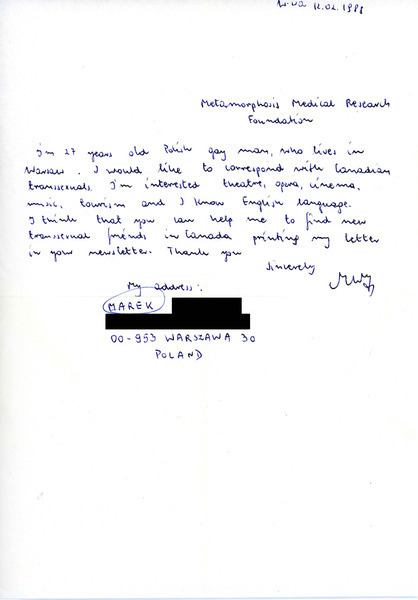 W-wa 12.02.1988
Metamorphosis Medical Research
Foundation
I'm 27 years old Polish gay man, who lives in
Warsaw. I would like to correspond with Canadian
transsexuals. I'm interested theatre, opera, cinema,
music, tourism and I know English language.
I think that you can help me to find new
transsexual friends in Canada printing my letter
in your newsletter. Thank you
Sincerely
My address:
MAREK
00-953 WARSZAWA 30
POLAND